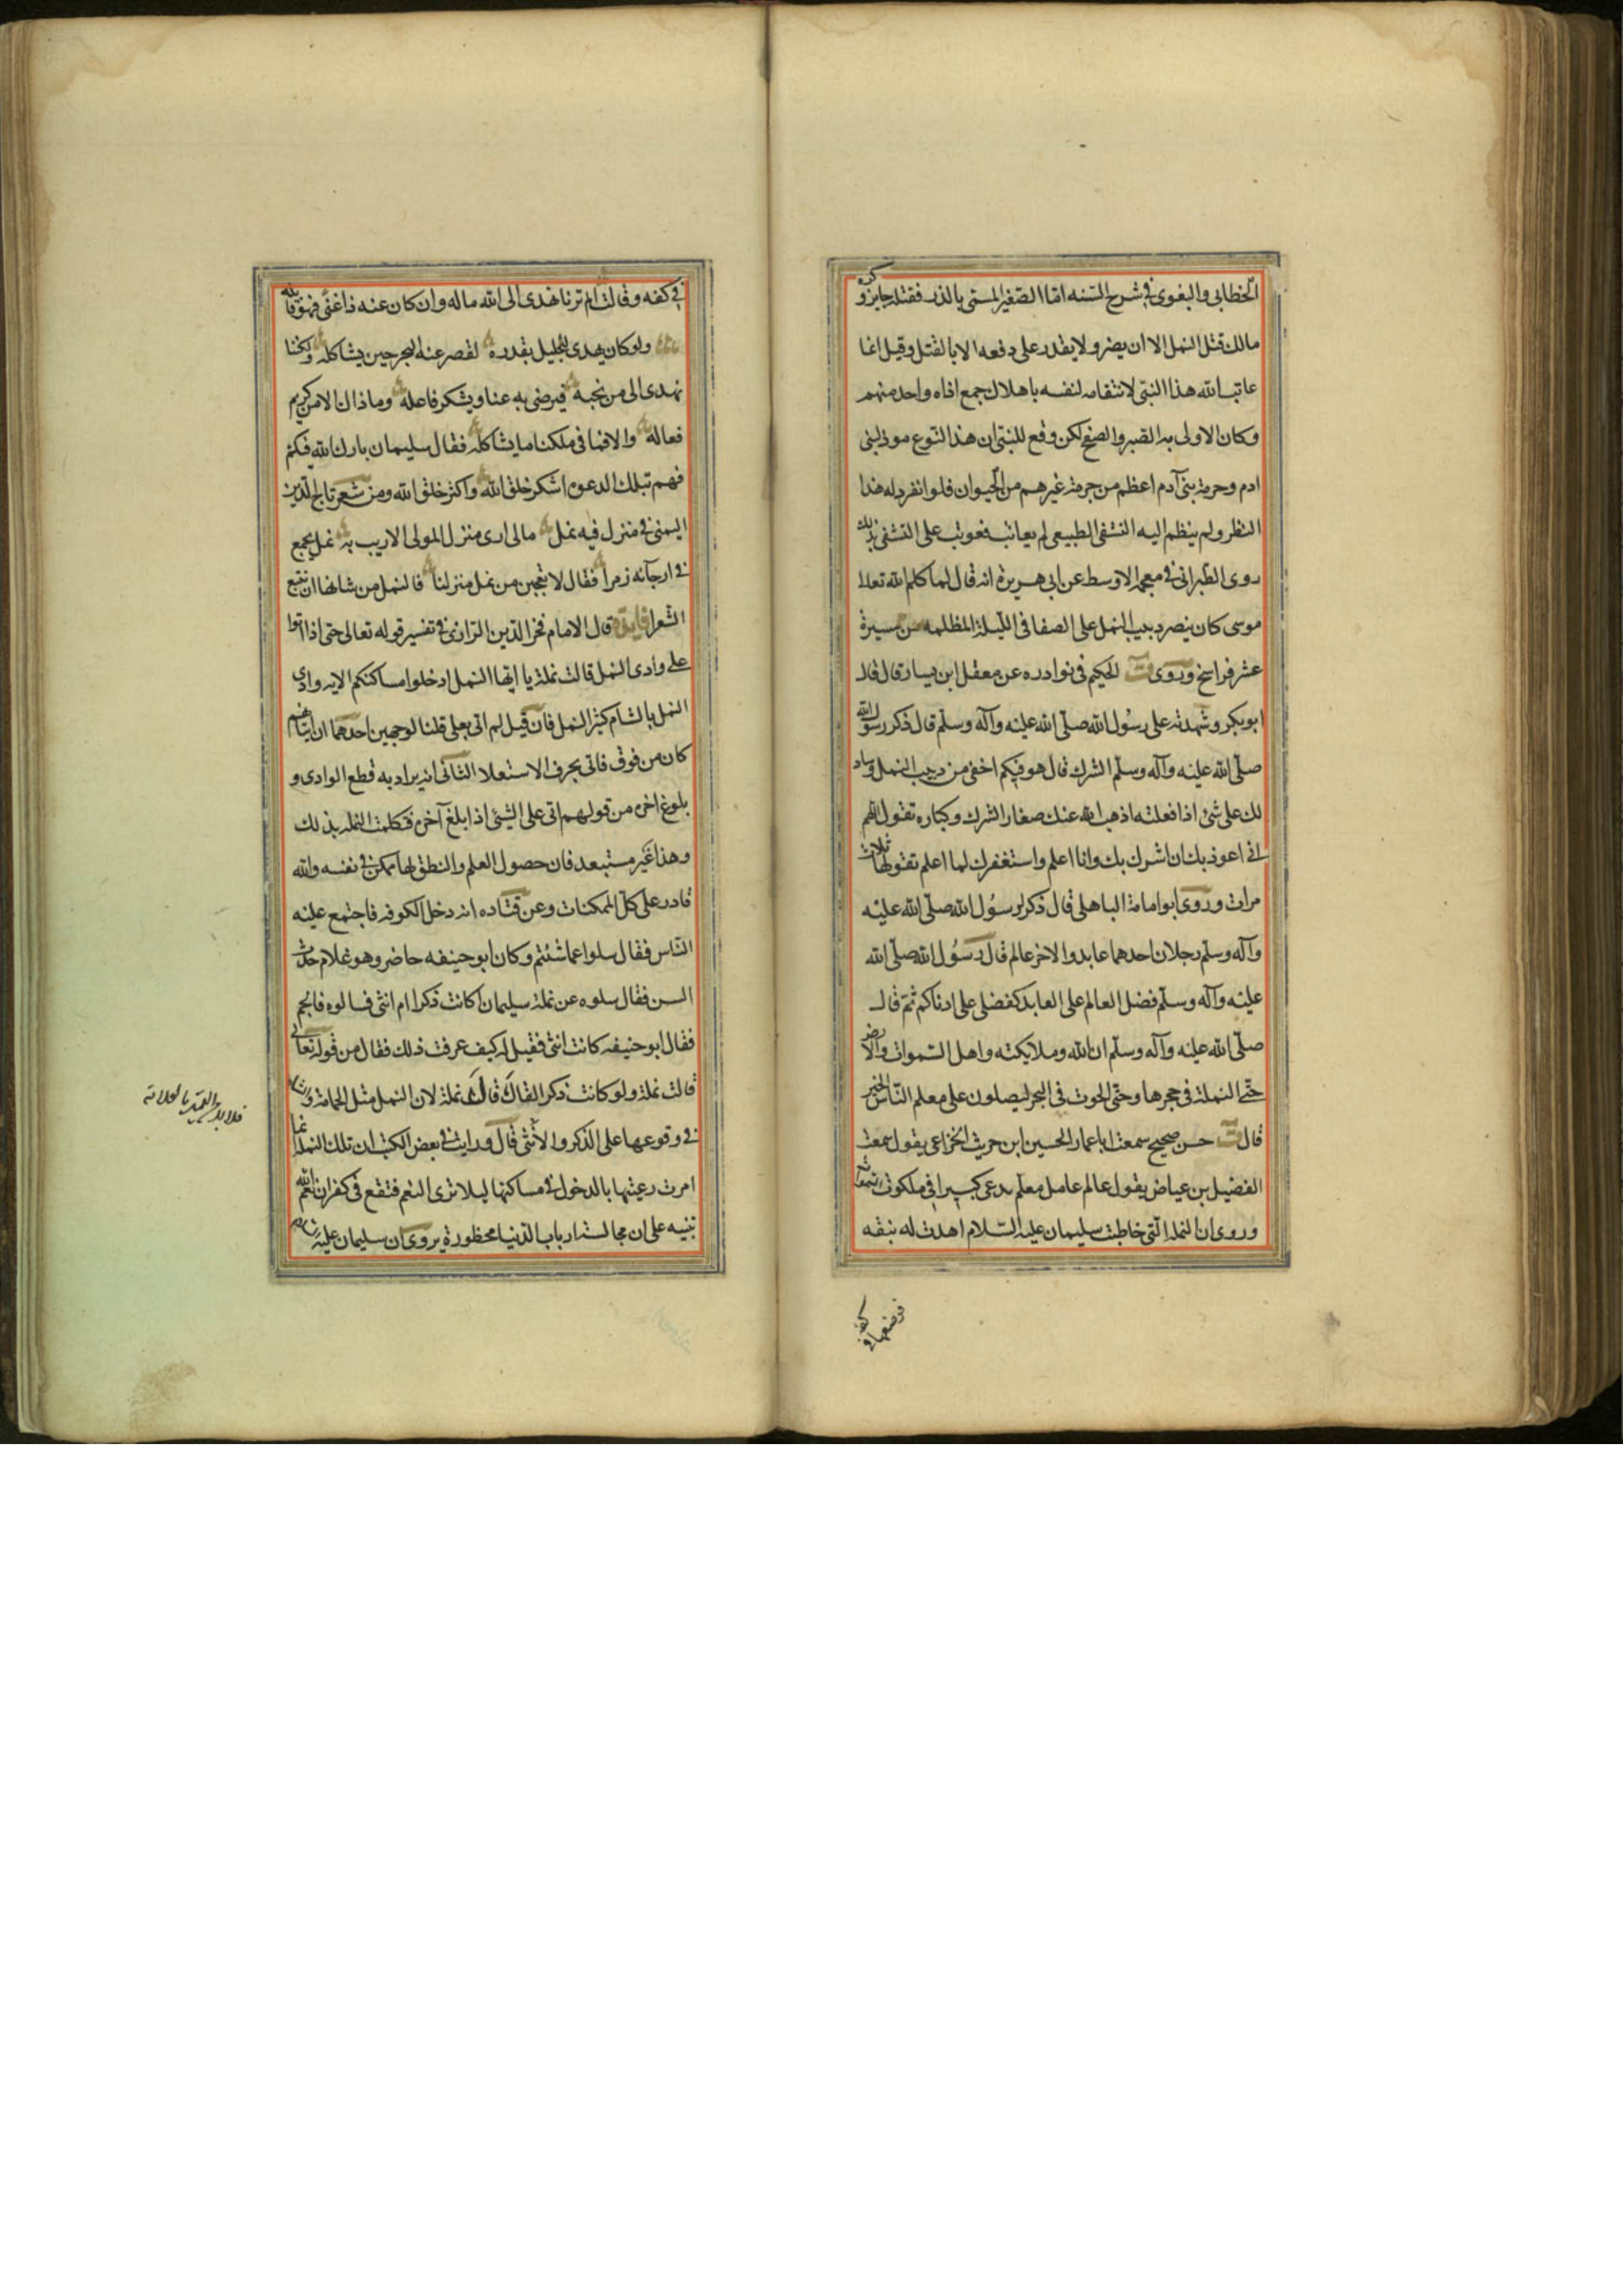 الخطابى والبغوى فى شرح السنه اما الصغير المسمى بالذر فقتله جايز وكره
مالك قتل النمل الا ان يضر ولا يقدر على دفعه الا بالقتل وقيل انما
عاتب الله هذا النبى لانتقامه لنفسه باهلاك جمع اذاه واحد منهم
وكان الاولى به الصبر والصفح لكن وقع للنبى ان هذا النوع موذ لبنى
ادم وحرمة بنى آدم اعظم من حرمة غيرهم من الحيوان فلو انفرد له هذا
النظر ولم ينظم اليه التشفى الطبيعى لم يعاتب فعوتب على التشفى بذلك
روى الطبرانى فى معجمه الاوسط عن ابى هريرة انه قال لما كلم الله تعالى
موسى كان يبصر دبيب النمل على الصفا فى الليلة المظلمه من مسيرة
عشر فراسخ وروى ت الحكيم فى نوادره عن معقل ابن يسار قال قال
ابو بكر وشهد به على رسول الله صلى الله عليه وآله وسلم قال ذكر رسول الله
صلى الله عليه وآله وسلم الشرك قال هو فيكم اخفى من دبيب النمل وساد
لك على شئ اذا فعلته اذهب الله عنك صغار الشرك وكباره تقول اللهم
انى اعوذ بك ان اشرك بك وانا اعلم واستغفرك لما اعلم تقولها ثلاث
مرات وروى ابو امامة الباهلى قال ذكر لرسول الله صلى الله عليه
وآله وسلم رجلان احدهما عابد والاخر عالم قال رسول الله صلى الله
عليه وآله وسلم فضل العالم على العابد كفضلى على ادناكم ثم قال
صلى الله عليه وآله وسلم ان الله وملايكته واهل السموات والارض
حتى النملة فى حجرها وحتى الحوت فى البحر ليصلون على معلم الناس الخير
قال ت حسن صحيح سمعت ابا عمار الحسين ابن حريث الخزاعى يقول سمعت
الفضيل بن عياض يقول عالم عامل معلم يدعى كبيرا فى ملكوت السموات
وروى ان النملة التى خاطبت سليمان عليه السلام اهدت له نبقه
فوضعها فى كفه
فى كفه وقالت الم ترنا نهدى الى الله ماله وان كان عنه ذا غنى فهو قابله
ولو كان يهدى للجليل بقدره لقصر عنه البحر حين يشاكله ولكننا
نهدى الى من نحبه فيرضى به عنا ويشكر فاعله وما ذاك الا من كريم
فعاله والا فما فى ملكنا ما يشاكله فقال سليمان بارك الله فيكم
فهم بتلك الدعوه اشكر خلق الله واكثر خلق الله ومن شعر تاج الدين
اليمنى فى منزل فيه نمل مالى ارى منزل المولى الاريب به نمل يجمع
فى ارجآئه زمرا فقال لا تعجبن من نمل منزلنا فالنمل من شانها ان تتبع
الشعرا فايدة قال الامام فخر الدين الرازى فى تفسير قوله تعالى حتى اذا اتوا
على وادى النمل قالت نملة يا ايها النمل ادخلوا مساكنكم الايه وادى
النمل بالشام كثير النمل فان قيل لم اتى بعلى قلنا لوجهين احدهما ان اتيانهم
كان من فوق فاتى بحرف الاستعلا الثانى انه يراد به قطع الوادى و
بلوغ اخره من قولهم اتى على الشئ اذا بلغ آخره فتكلمت النملة بذلك
وهذا غير مستبعد فان حصول العلم والنطق لها ممكن فى نفسه والله
قادر على كل الممكنات وعن قتاده انه دخل الكوفه فاجتمع عليه
الناس فقال سلوا عما شئتم وكان ابو حنيفه حاضر وهو غلام حدث
السن فقال سلوه عن نملة سليمان اكانت ذكرا ام انثى فسالوه فافحم
فقال ابو حنيفه كانت انثى فقيل له كيف عرفت ذلك فقال من قوله تعالى
قالت نملة ولو كانت ذكرا لقال قال نملة لان النمل مثل الحمامة والشاة
فى وقوعها على الذكر والانثى قال ورايت فى بعض الكتب ان تلك النملة انما
امرت رعيتها بالدخول فى مساكنها ليلا ترى النعم فتقع فى كفران نعم الله
تنبيه على ان مجالسة ارباب الدنيا محظورة يروى ان سليمان عليه السلام